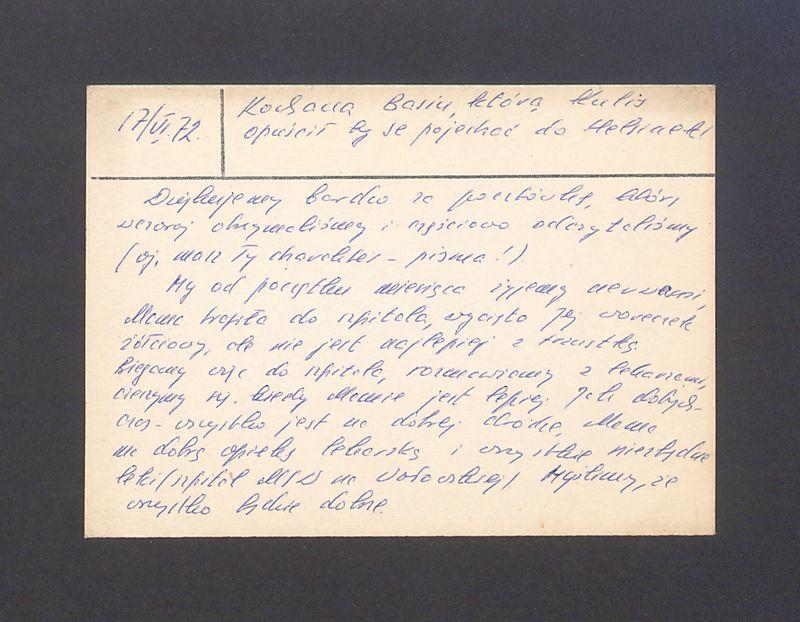 17/VI.72.
Kochana Basiu, którą Kulis
opuścił by se pojechać do Helsinek!
Dziękujemy bardzo za pocztówkę, którą
wczoraj otrzymaliśmy i częściowo odczytaliśmy
(oj, masz Ty charakter - pisma!).
My od początku miesiąca żyjemy nerwami,
Mama trafiła do szpitala, wycięto Jej woreczek
żółciowy, ale nie jest najlepiej z trzustką.
Biegamy więc do szpitala, rozmawiamy z lekarzami,
cieszymy się, kiedy Mamie jest lepiej. Jak dotych-
czas - wszystko jest na dobrej drodze, Mama
ma dobrą opiekę lekarską i wszystkie niezbędne
leki (szpital MSW na Wołoskiej) Myślimy, że
wszystko będzie dobrze.